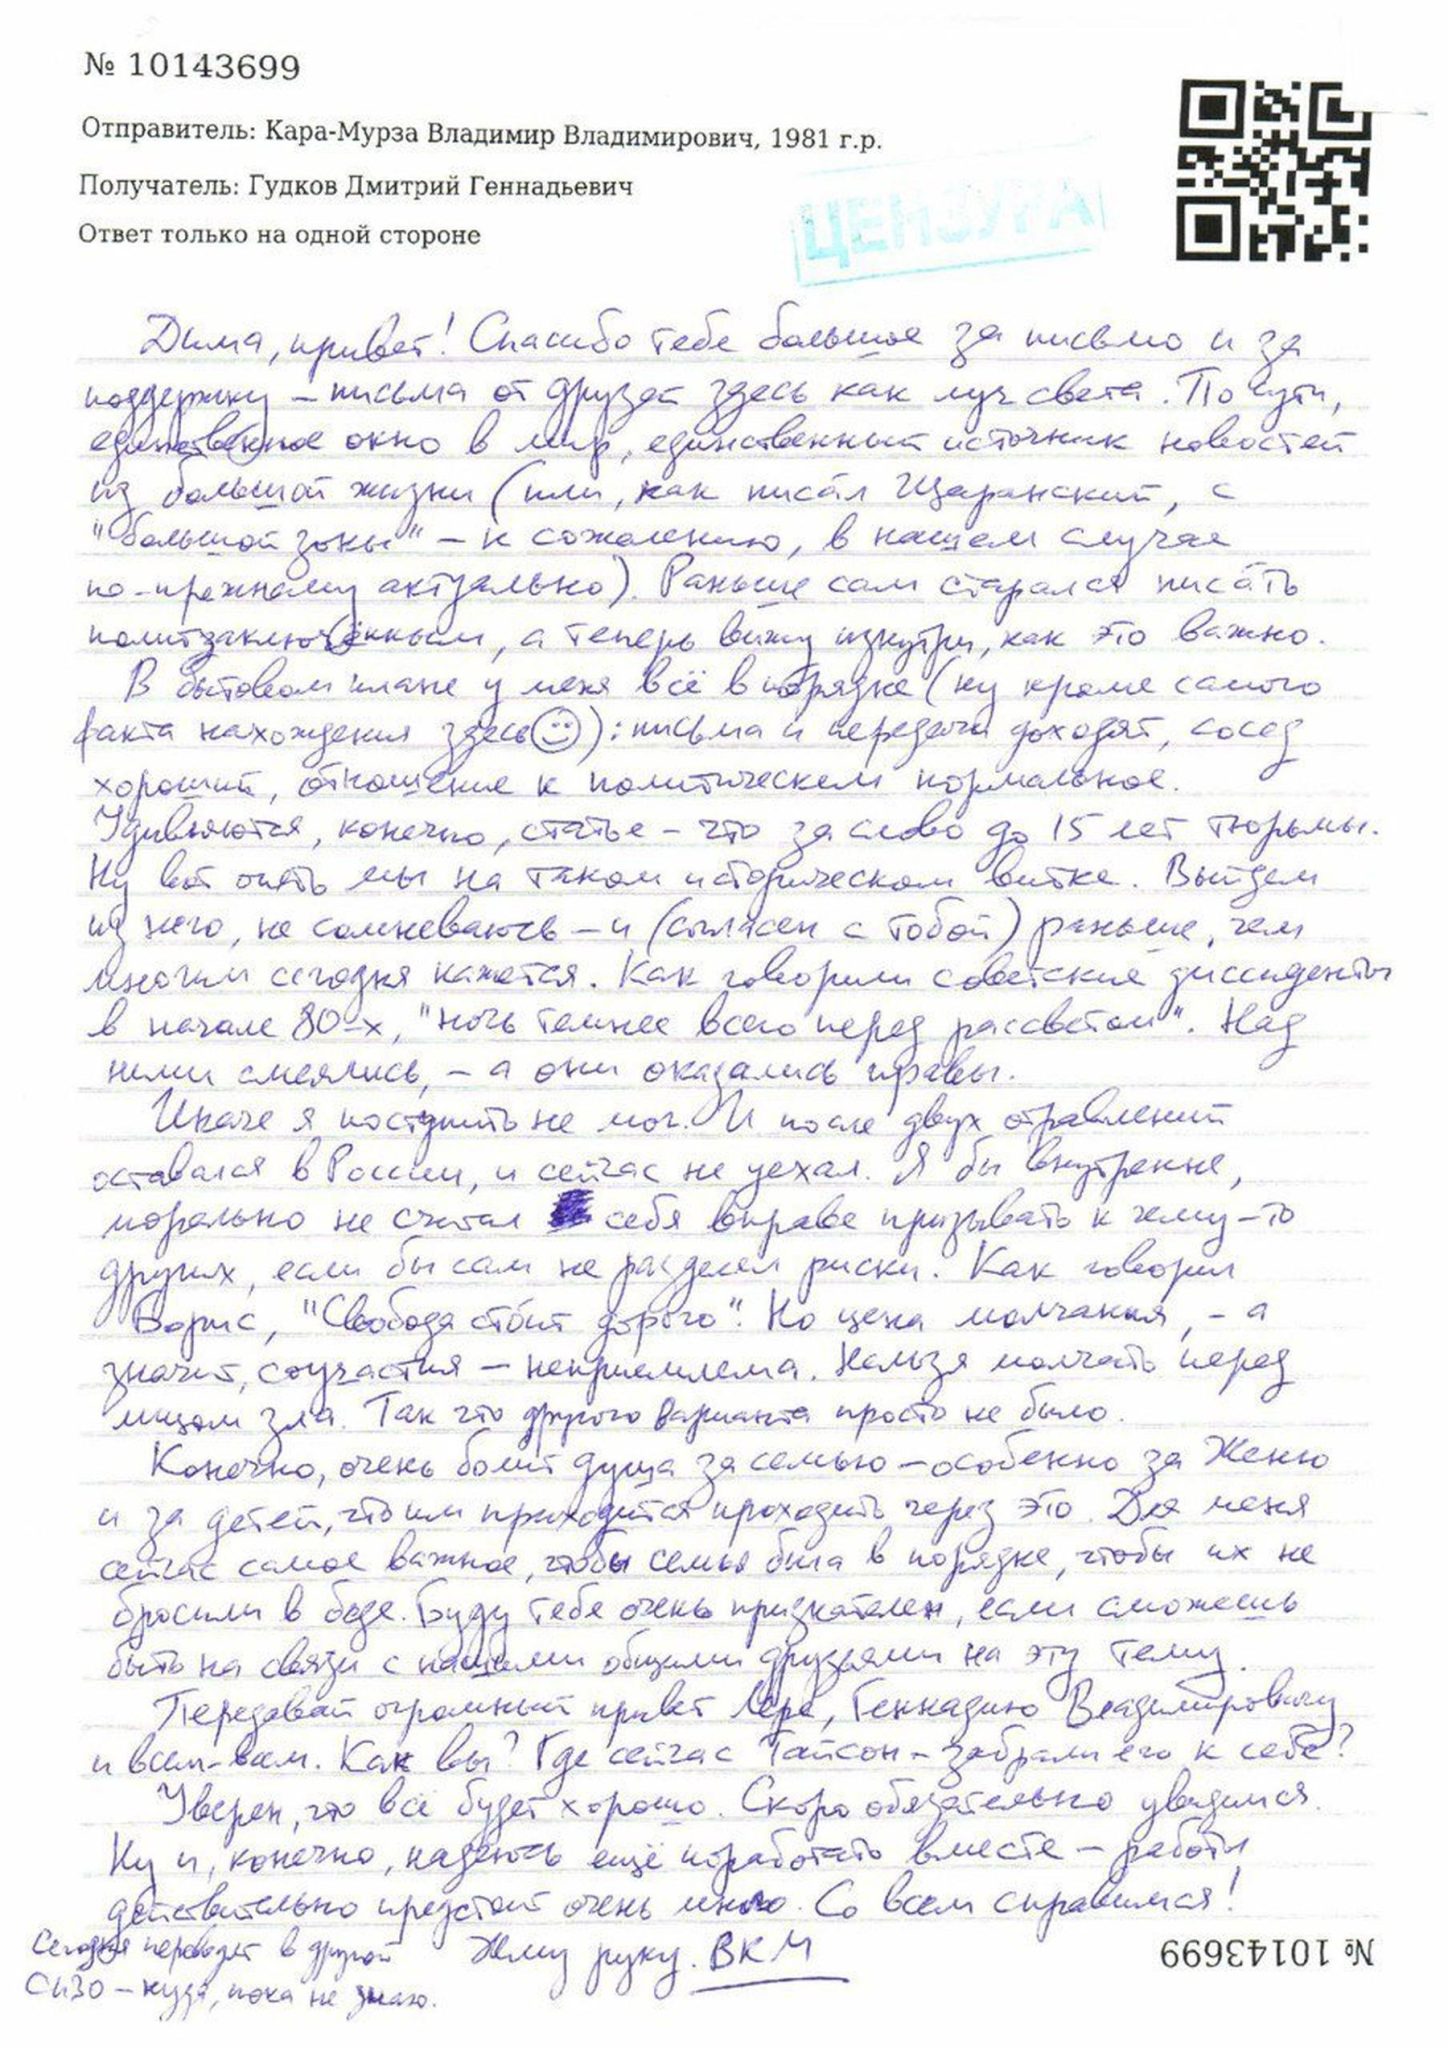 № 10143699
Отправитель: Кара-Мурза Владимир Владимирович, 1981 г.р.
Получатель: Гудков Дмитрий Геннадьевич
Ответ только на одной стороне
ЦЕНЗУРА
Дима, привет! Спасибо тебе большое за письмо и за
поддержку – письма от друзей здесь как луч света. По сути,
единственное окно в мир, единственный источник новостей
из большой жизни (или, как писал Щаранский, с
"большой зоны" – к сожалению, в нашем случае
по-прежнему актуально). Раньше сам старался писать
политзаключённым, а теперь вижу изнутри, как это важно.
В бытовом плане у меня всё в порядке (ну кроме самого
факта нахождения здесь ☺): письма и передачи доходят, сосед
хороший, отношение к политическим нормальное.
Удивляются, конечно, статье – что за слово до 15 лет тюрьмы.
Ну вот опять мы на таком историческом витке. Выйдем
из него, не сомневаюсь – и (согласен с тобой) раньше, чем
многим сегодня кажется. Как говорили советские диссиденты
в начале 80-х, "ночь темнее всего перед рассветом". Над
ними смеялись, – а они оказались правы.
Иначе я поступить не мог. И после двух отравлений
оставался в России, и сейчас не уехал. Я бы внутренне,
морально не считал себя вправе призывать к чему-то
других, если бы сам не разделял риски. Как говорил
Борис, "Свобода стоит дорого". Но цена молчания, – а
значит, соучастия – неприемлема. Нельзя молчать перед
лицом зла. Так что другого варианта просто не было.
Конечно, очень болит душа за семью – особенно за Женю
и за детей, что им приходится проходить через это. Для меня
сейчас самое важное, чтобы семья была в порядке, чтобы их не
бросили в беде. Буду тебе очень признателен, если сможешь
быть на связи с нашими общими друзьями на эту тему.
Передавай огромный привет Лере, Геннадию Владимировичу
и всем-всем. Как вы? Где сейчас Тайсон – забрали его к себе?
Уверен, что всё будет хорошо. Скоро обязательно увидимся.
Ну и, конечно, надеюсь ещё поработать вместе – работы
действительно предстоит очень много. Со всем справимся!
Жму руку. ВКМ
Сегодня переводят в другой
СИЗО – куда, пока не знаю.
№ 10143699